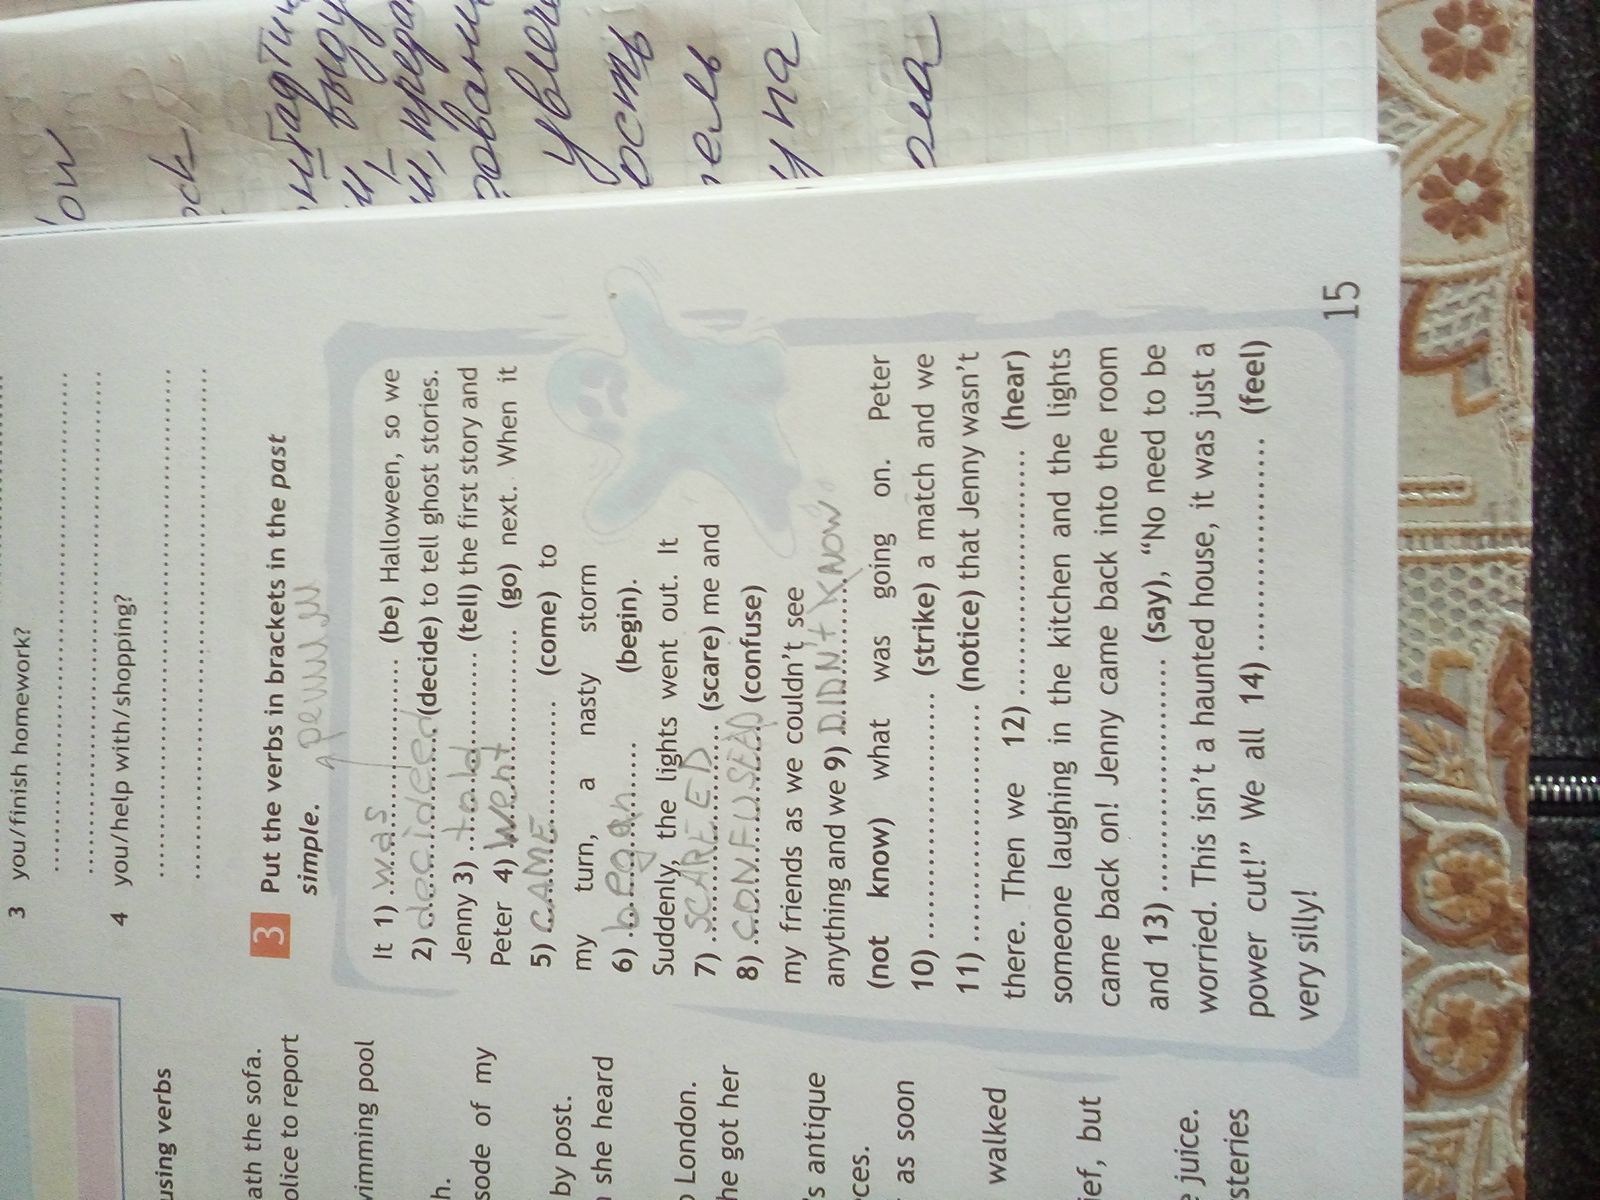 3 you/finish homework?
4 you/help with/shopping?
3 Put the verbs in brackets in the past
simple.
It 1) was (be) Halloween, so we
2) decideed (decide) to tell ghost stories.
Jenny 3) told (tell) the first story and
Peter 4) Went (go) next. When it
5) CAME (come) to
my turn, a nasty storm
6) began (begin).
Suddenly, the lights went out. It
7) SCARE ED (scare) me and
8) CONFUSEAD (confuse)
my friends as we couldn't see
anything and we 9) DIDN't KNOW
(not know) what was going on. Peter
10) (strike) a match and we
11) (notice) that Jenny wasn't
there. Then we 12) (hear)
someone laughing in the kitchen and the lights
came back on! Jenny came back into the room
and 13) (say), "No need to be
worried. This isn't a haunted house, it was just a
power cut!" We all 14) (feel)
very silly!
15
using verbs
ath the sofa.
olice to report
vimming pool
h.
sode of my
by post.
she heard
London.
he got her
's antique
ces.
as soon
walked
ief, but
juice.
steries
ock
увлеч
ость
ель
упа